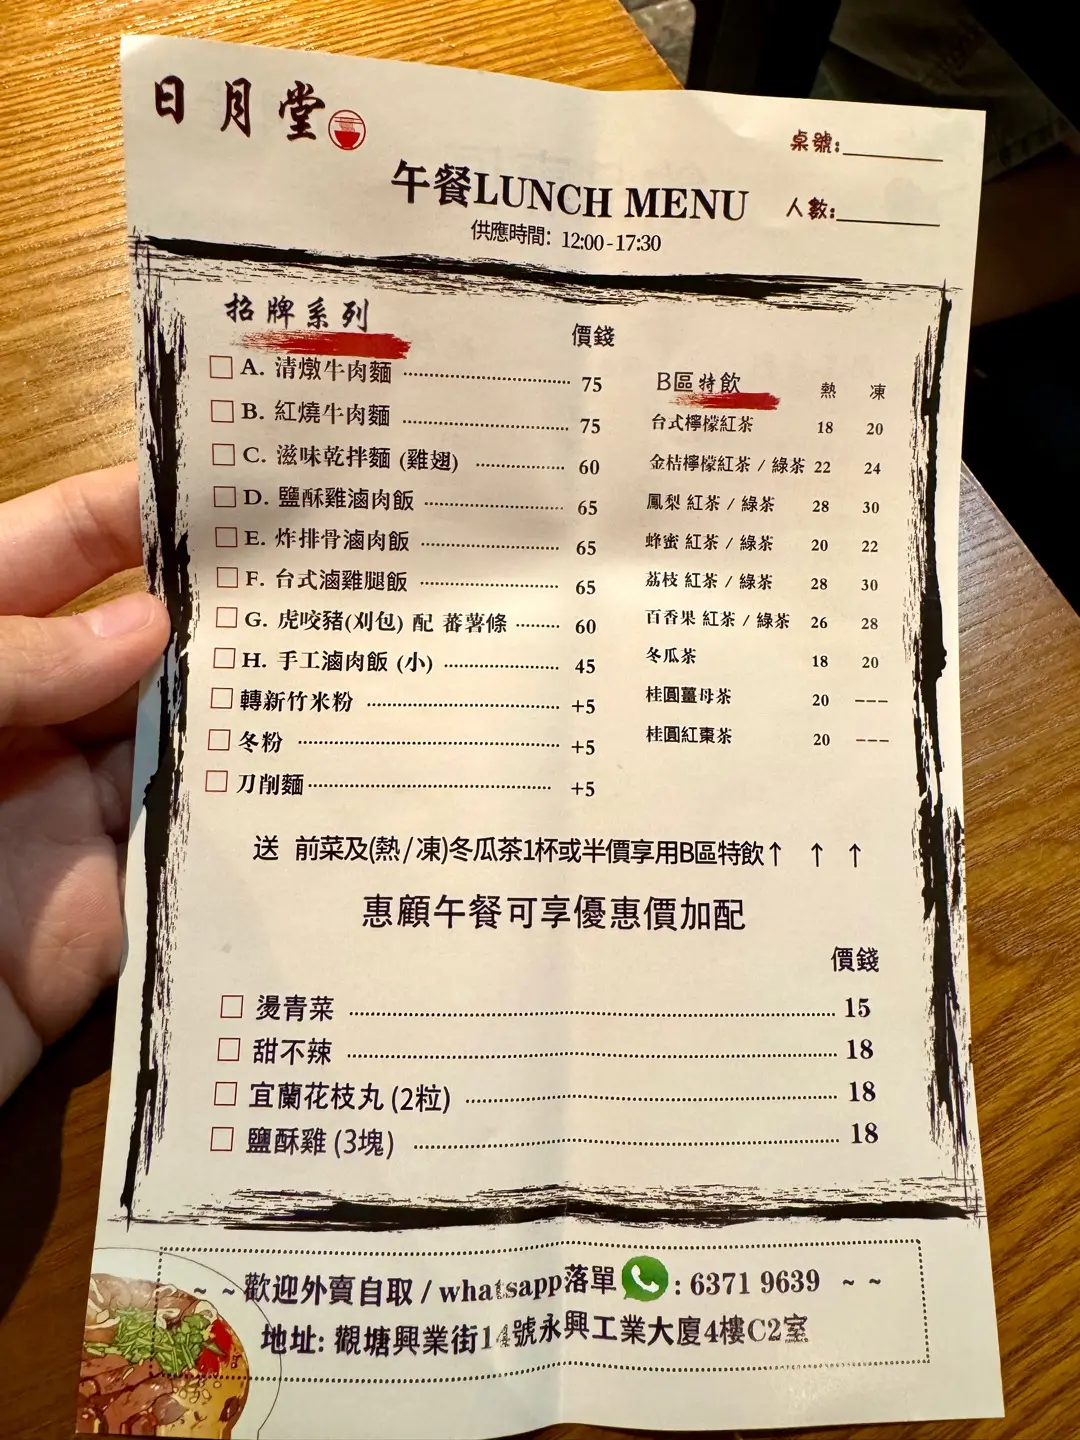 日月堂
桌號:
午餐LUNCH MENU
人數:
供應時間: 12:00-17:30
招牌系列
價錢
A. 清燉牛肉麵 75
B. 紅燒牛肉麵 75
C. 滋味乾拌麵 (雞翅) 60
D. 鹽酥雞滷肉飯 65
E. 炸排骨滷肉飯 65
F. 台式滷雞腿飯 65
G. 虎咬豬(刈包) 配 蕃薯條 60
H. 手工滷肉飯 (小) 45
轉新竹米粉 +5
冬粉 +5
刀削麵 +5
B區特飲 熱 凍
台式檸檬紅茶 18 20
金桔檸檬紅茶 / 綠茶 22 24
鳳梨 紅茶 / 綠茶 28 30
蜂蜜 紅茶 / 綠茶 20 22
荔枝 紅茶 / 綠茶 28 30
百香果 紅茶 / 綠茶 26 28
冬瓜茶 18 20
桂圓薑母茶 20 ---
桂圓紅棗茶 20 ---
送 前菜及(熱/凍)冬瓜茶1杯或半價享用B區特飲↑ ↑ ↑
惠顧午餐可享優惠價加配
價錢
燙青菜 15
甜不辣 18
宜蘭花枝丸 (2粒) 18
鹽酥雞 (3塊) 18
~ ~ 歡迎外賣自取 / whatsapp落單 : 6371 9639 ~ ~
地址: 觀塘興業街14號永興工業大廈4樓C2室